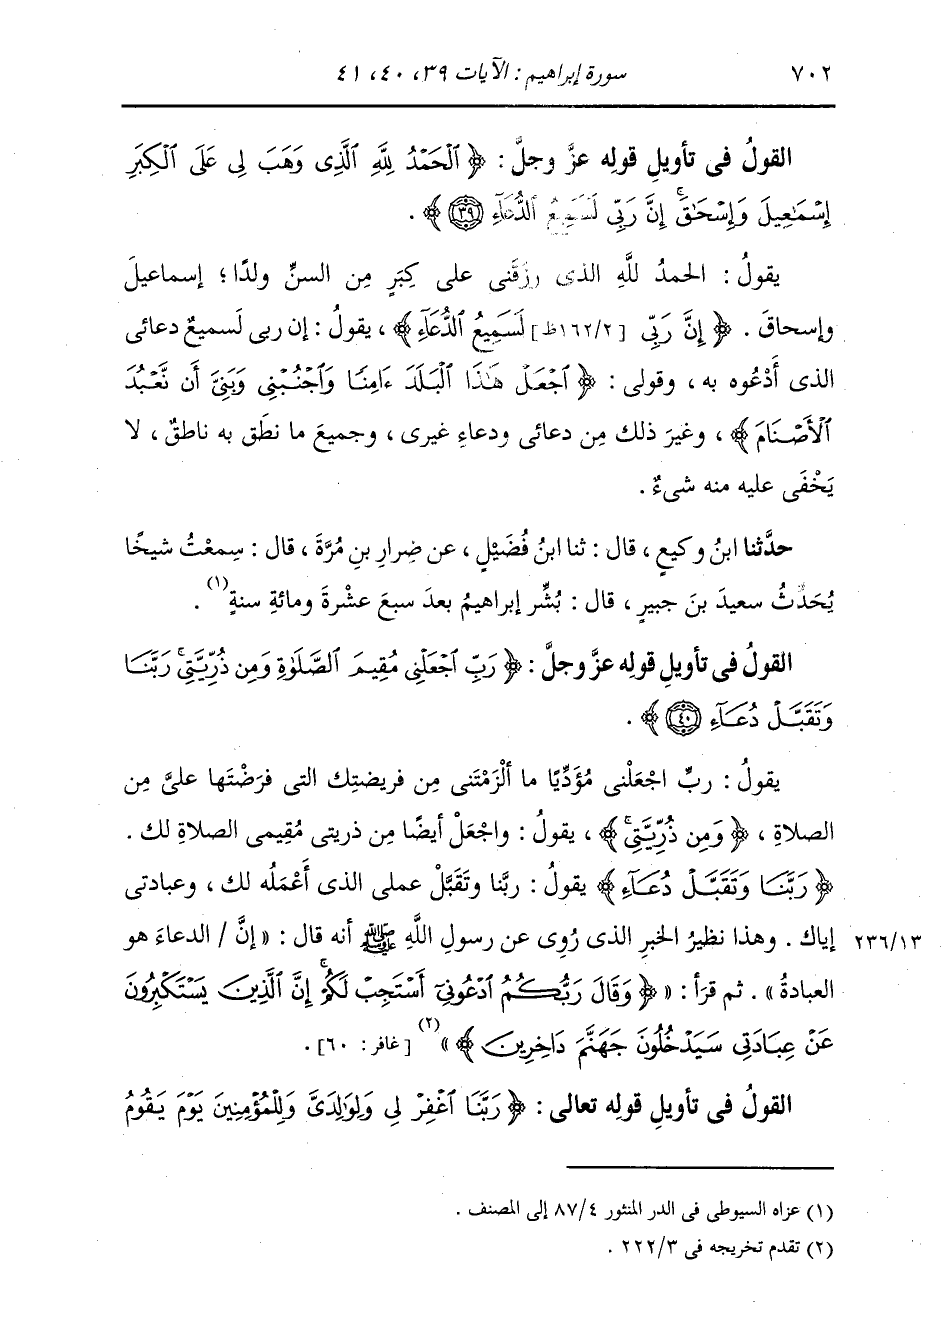 ٧٠٢ سورة إبراهيم : الآيات ٣٩، ٤٠، ٤١
القولُ فى تأويلِ قوله عزَّ وجلَّ : ﴿ ٱلْحَمْدُ لِلَّهِ ٱلَّذِى وَهَبَ لِى عَلَى ٱلْكِبَرِ
إِسْمَٰعِيلَ وَإِسْحَٰقَۚ إِنَّ رَبِّى لَسَمِيعُ ٱلدُّعَآءِ ﴿٣٩﴾ ﴾ .
يقولُ : الحمدُ للَّهِ الذى رزَقَنى على كِبَرٍ مِن السنِّ ولدًا ؛ إسماعيلَ
وإسحاقَ . ﴿ إِنَّ رَبِّى [١٦٢/٢ظ] لَسَمِيعُ ٱلدُّعَآءِ ﴾ ، يقولُ : إن ربى لَسميعٌ دعائى
الذى أَدْعُوه به ، وقولى : ﴿ ٱجْعَلْ هَٰذَا ٱلْبَلَدَ ءَامِنًا وَٱجْنُبْنِى وَبَنِىَّ أَن نَّعْبُدَ
ٱلْأَصْنَامَ ﴾ ، وغيرَ ذلك مِن دعائى ودعاءِ غيرى ، وجميعَ ما نطَق به ناطقٌ ، لا
يَخْفَى عليه منه شىءٌ .
حدَّثنا ابنُ وكيعٍ ، قال : ثنا ابنُ فُضَيْلٍ ، عن ضِرارِ بنِ مُرَّةَ ، قال : سمِعْتُ شيخًا
يُحَدِّثُ سعيدَ بنَ جبيرٍ ، قال : بُشِّر إبراهيمُ بعدَ سبعَ عشْرةَ ومائةِ سنةٍ(١) .
القولُ فى تأويلِ قوله عزَّ وجلَّ : ﴿ رَبِّ ٱجْعَلْنِى مُقِيمَ ٱلصَّلَوٰةِ وَمِن ذُرِّيَّتِىۚ رَبَّنَا
وَتَقَبَّلْ دُعَآءِ ﴿٤٠﴾ ﴾ .
يقولُ : ربِّ اجْعَلْنى مُؤَدِّيًا ما ألْزَمْتَنى مِن فريضتِك التى فرَضْتَها علىَّ مِن
الصلاةِ ، ﴿ وَمِن ذُرِّيَّتِىۚ ﴾ ، يقولُ : واجْعَلْ أيضًا مِن ذريتى مُقِيمى الصلاةِ لك .
﴿ رَبَّنَا وَتَقَبَّلْ دُعَآءِ ﴾ يقولُ : ربَّنا وتَقَبَّلْ عملى الذى أَعْمَلُه لك ، وعبادتى
إياك . وهذا نظيرُ الخبرِ الذى رُوِى عن رسولِ اللَّهِ ﷺ أنه قال : « إنَّ / الدعاءَ هو ٢٣٦/١٣
العبادةُ » . ثم قرَأ : « ﴿ وَقَالَ رَبُّكُمُ ٱدْعُونِىٓ أَسْتَجِبْ لَكُمْۚ إِنَّ ٱلَّذِينَ يَسْتَكْبِرُونَ
عَنْ عِبَادَتِى سَيَدْخُلُونَ جَهَنَّمَ دَاخِرِينَ ﴾ »(٢) [غافر : ٦٠] .
القولُ فى تأويلِ قولِه تعالى : ﴿ رَبَّنَا ٱغْفِرْ لِى وَلِوَٰلِدَىَّ وَلِلْمُؤْمِنِينَ يَوْمَ يَقُومُ
(١) عزاه السيوطى فى الدر المنثور ٨٧/٤ إلى المصنف .
(٢) تقدم تخريجه فى ٢٢٢/٣ .